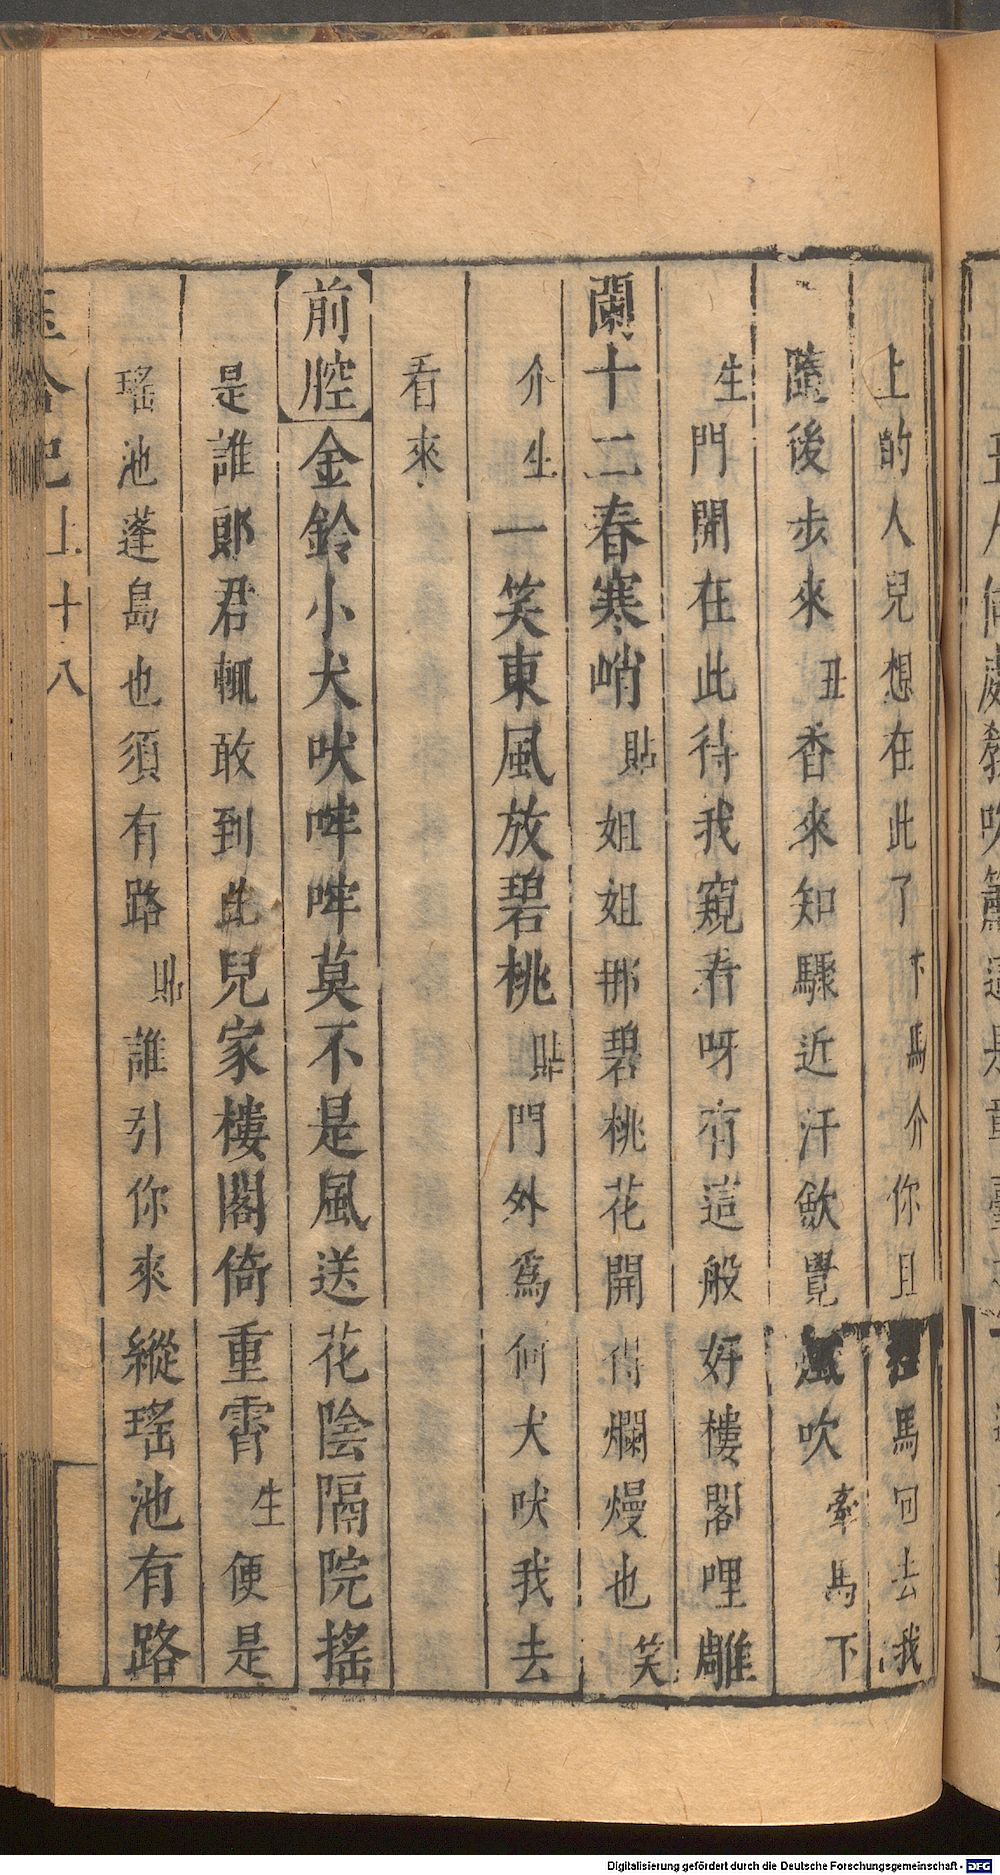 上的人兒想在此了下馬介你且牽馬回去我
隨後步來丑香來知驟近汗歛覺風吹牽馬下
生門開在此待我窺看呀有這般好樓閣哩雕
闌十二春寒峭貼姐姐那碧桃花開得爛熳也笑
介生一笑東風放碧桃貼門外爲何犬吠我去
看來
前腔金鈴小犬吠哰哰莫不是風送花陰隔院搖
是誰郎君輒敢到此兒家樓閣倚重霄生便是
瑤池蓬島也須有路貼誰引你來縱瑤池有路
玉合記上十八
Digitalisierung gefördert durch die Deutsche Forschungsgemeinschaft - DFG